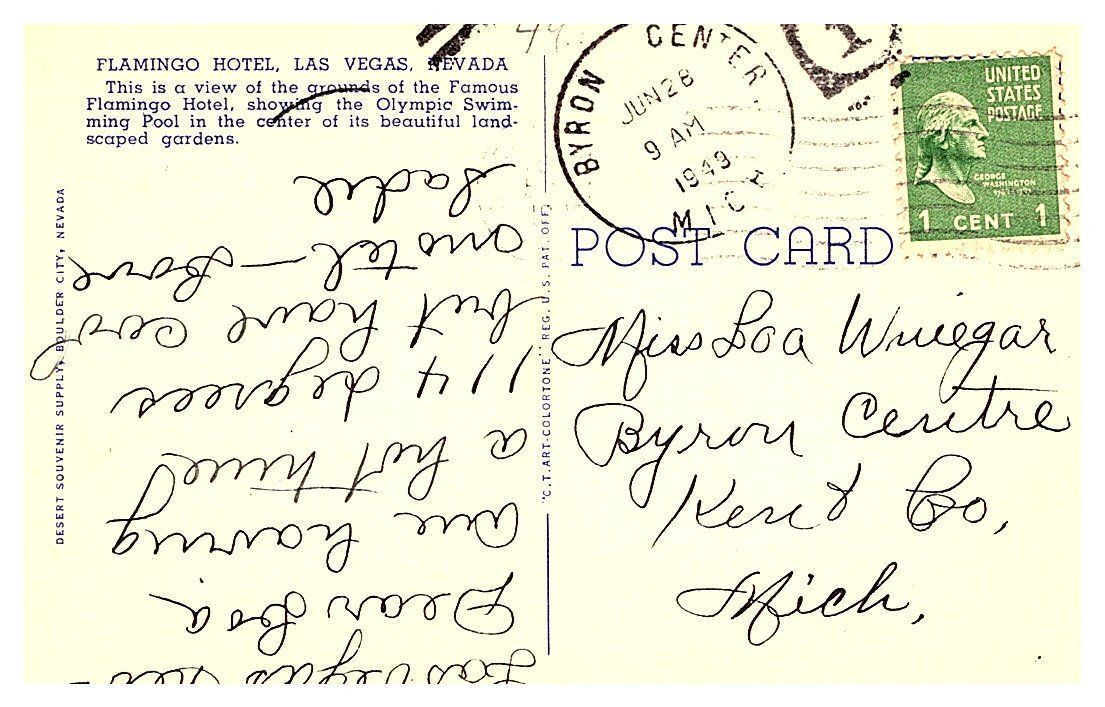 FLAMINGO HOTEL, LAS VEGAS, NEVADA
This is a view of the grounds of the Famous
Flamingo Hotel, showing the Olympic Swim-
ming Pool in the center of its beautiful land-
scaped gardens.
DESERT SOUVENIR SUPPLY, BOULDER CITY, NEVADA
Las Vegas Nev-
Dear Loa,
Am having
a hot time
114 degrees
but have cool
motel - Love
Sadie
"C.T. ART-COLORTONE" REG. U.S. PAT. OFF.
49
BYRON CENTER,
JUN 28
9 AM
1949
MICH
1
UNITED
STATES
POSTAGE
GEORGE
WASHINGTON
1 CENT 1
POST CARD
Miss Loa Winegar
Byron Centre
Kent Co,
Mich,